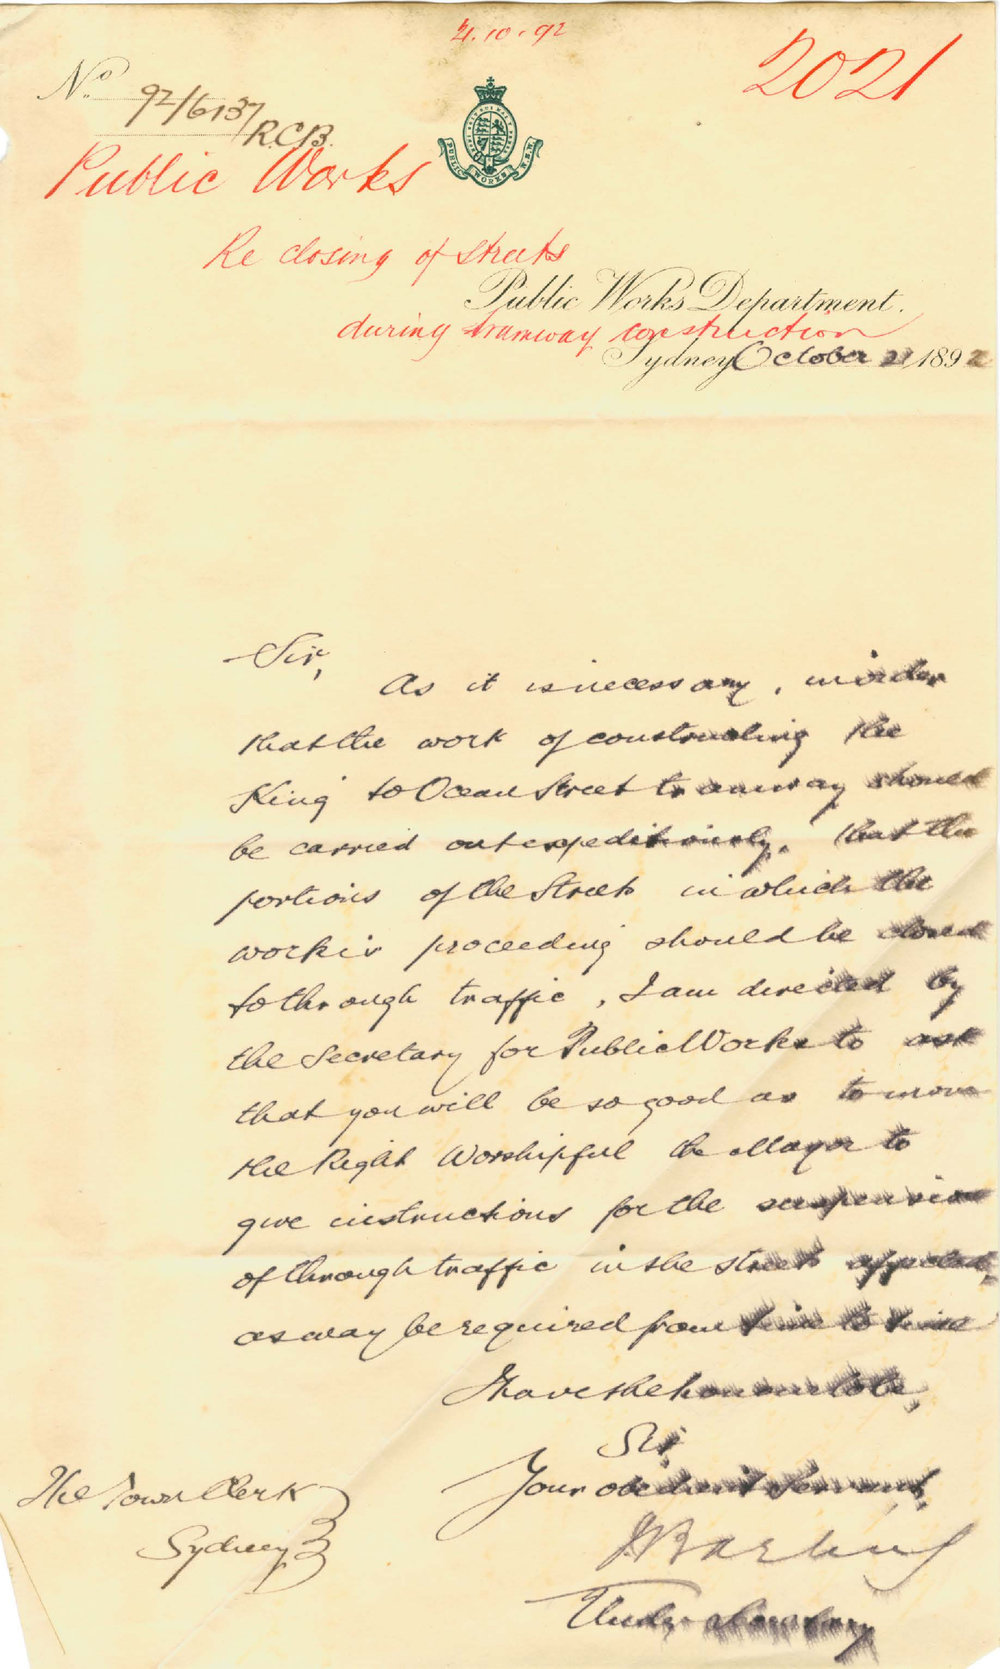 4.10.92
2021
No 92/6137
R.C.B.
PUBLIC WORKS N.S.W.
Public Works
Re closing of streets
Public Works Department.
during tramway construction
Sydney October 1892
Sir,
As it is necessary, in order
that the work of constructing the
King to Ocean Street tramway should
be carried out expeditiously, that the
portions of the Streets in which the
work is proceeding should be closed
to through traffic, I am directed by
the Secretary for Public Works to ask
that you will be so good as to move
the Right Worshipful the Mayor to
give instructions for the suspension
of through traffic in the streets affected,
as may be required from time to time
I have the honour to be,
Sir,
Your obedient Servant,
J Barling
Under Secretary
The Town Clerk
Sydney